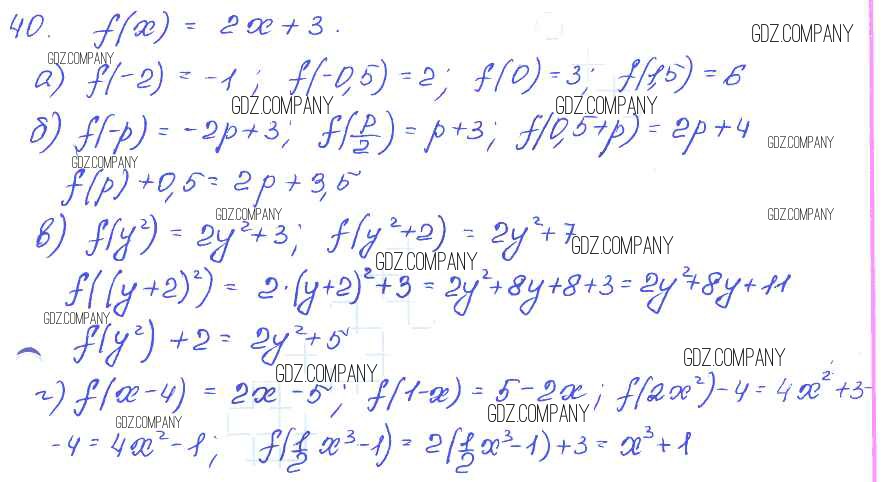 40. f(x) = 2x + 3.
GDZ.COMPANY
GDZ.COMPANY
а) f(-2) = -1; f(-0,5) = 2; f(0) = 3; f(1,5) = 6
GDZ.COMPANY GDZ.COMPANY
б) f(-p) = -2p + 3; f(p/2) = p + 3; f(0,5+p) = 2p + 4
GDZ.COMPANY
GDZ.COMPANY
f(p) + 0,5 = 2p + 3,5
GDZ.COMPANY GDZ.COMPANY
в) f(y²) = 2y² + 3; f(y²+2) = 2y² + 7
GDZ.COMPANY
GDZ.COMPANY
f((y+2)²) = 2·(y+2)² + 3 = 2y² + 8y + 8 + 3 = 2y² + 8y + 11
GDZ.COMPANY
f(y²) + 2 = 2y² + 5
GDZ.COMPANY
GDZ.COMPANY
г) f(x-4) = 2x - 5; f(1-x) = 5 - 2x; f(2x²) - 4 = 4x² + 3 -
GDZ.COMPANY
GDZ.COMPANY
- 4 = 4x² - 1; f(1/2 x³ - 1) = 2(1/2 x³ - 1) + 3 = x³ + 1